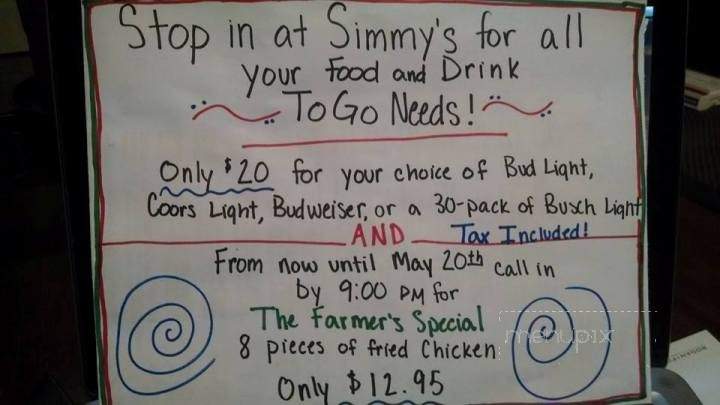 Stop in at Simmy's for all
your Food and Drink
To Go Needs!
Only $20 for your choice of Bud Light,
Coors Light, Budweiser, or a 30-pack of Busch Light
AND Tax Included!
From now until May 20th call in
by 9:00 PM for
The Farmer's Special
8 pieces of fried Chicken
Only $12.95
menupix